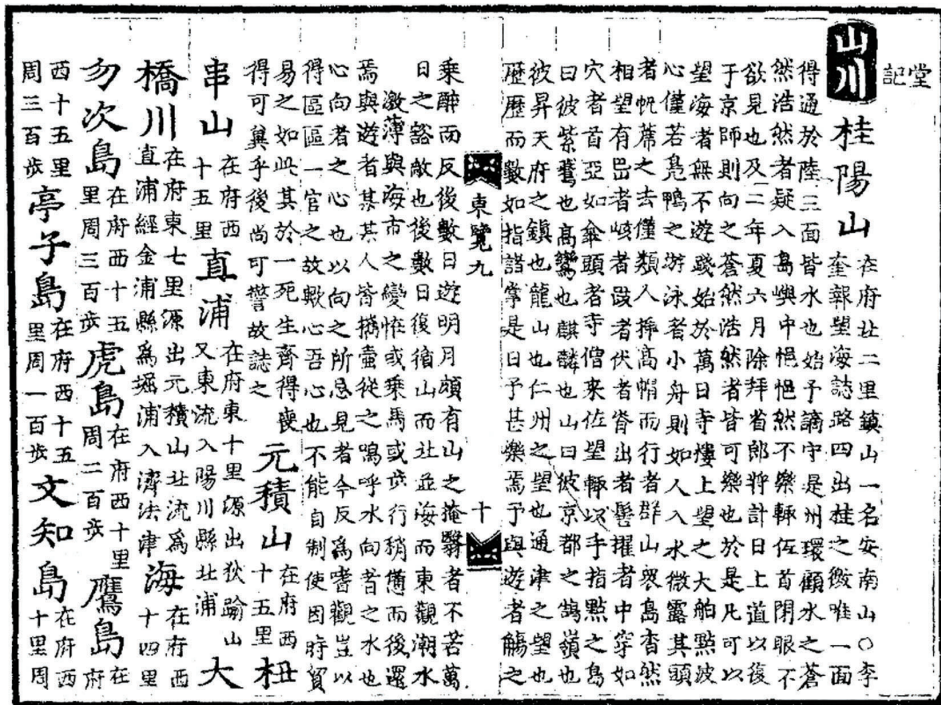 堂
記
山川
桂陽山
在府北二里鎮山一名安南山○李
奎報望海誌路四出桂之徼唯一面
得通於陸三面皆水也始予謫守是州環顧水之蒼
然浩然者疑入島嶼中悒悒然不樂輒低首閉眼不
欲見也及二年夏六月除拜省郎將計日上道以復
于京師則向之蒼然浩然者皆可樂也於是凡可以
望海者無不遊踐始於萬日寺樓上望之大舶點波
心僅若鳧鴨之游泳者小舟則如人入水微露其頭
者帆席之去僅類人揷高帽而行者群山衆島杳然
相望有岊者岐者跂者伏者脊出者髻擢者中穿如
穴者首亞如傘頭者寺僧來佐望輒以手指點之島
曰彼紫鷰也高鸞也麒麟也山曰彼京都之鵠嶺也
彼昇天府之鎮也龍山也仁州之望也通津之望也
歷歷而數如指諸掌是日予甚樂焉予與遊者觴之
東覽九
十
乘醉而反後數日遊明月頗有山之掩翳者不苦萬
日之豁敞也後數日復循山而北並海而東觀潮水
激薄與海市之變怪或乘馬或步行稍憊而後還
焉與遊者某某人皆携壺從之嗚呼水向者之水也
心向者之心也以向之所忌見者今反爲嗜觀豈以
得區區一官之故歟心吾心也不能自制使因時貿
易之如此其於一死生齊得喪
得可冀乎後尚可警故誌之
元積山
在府西
十五里
杻
串山
在府西
十五里
直浦
在府東十里源出狄踰山
又東流入陽川縣北浦
大
橋川
在府東七里源出元積山北流爲
直浦經金浦縣爲堀浦入濟法津
海
在府西
十四里
勿次島
在府西十五
里周三百步
虎島
在府西十里
周二百步
鷹島
在
府
西十五里
周三百步
亭子島
在府西十五
里周一百步
文知島
在府西
十里周